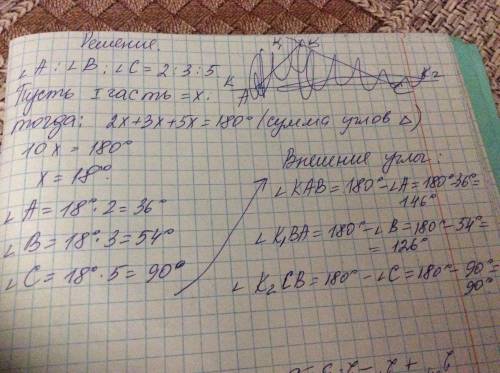 Решение.
∠A : ∠B : ∠C = 2 : 3 : 5
Пусть I часть = x.
тогда: 2x+3x+5x=180° (сумма углов △)
10x = 180°
x = 18°
∠A = 18° · 2 = 36°
∠B = 18° · 3 = 54°
∠C = 18° · 5 = 90°
K
A
K₁
B
K₂
Внешние углы:
∠KAB = 180° - ∠A = 180°-36° =
146°
∠K₁BA = 180° - ∠B = 180° - 54° =
= 126°
∠K₂CB = 180° - ∠C = 180° - 90° =
90°